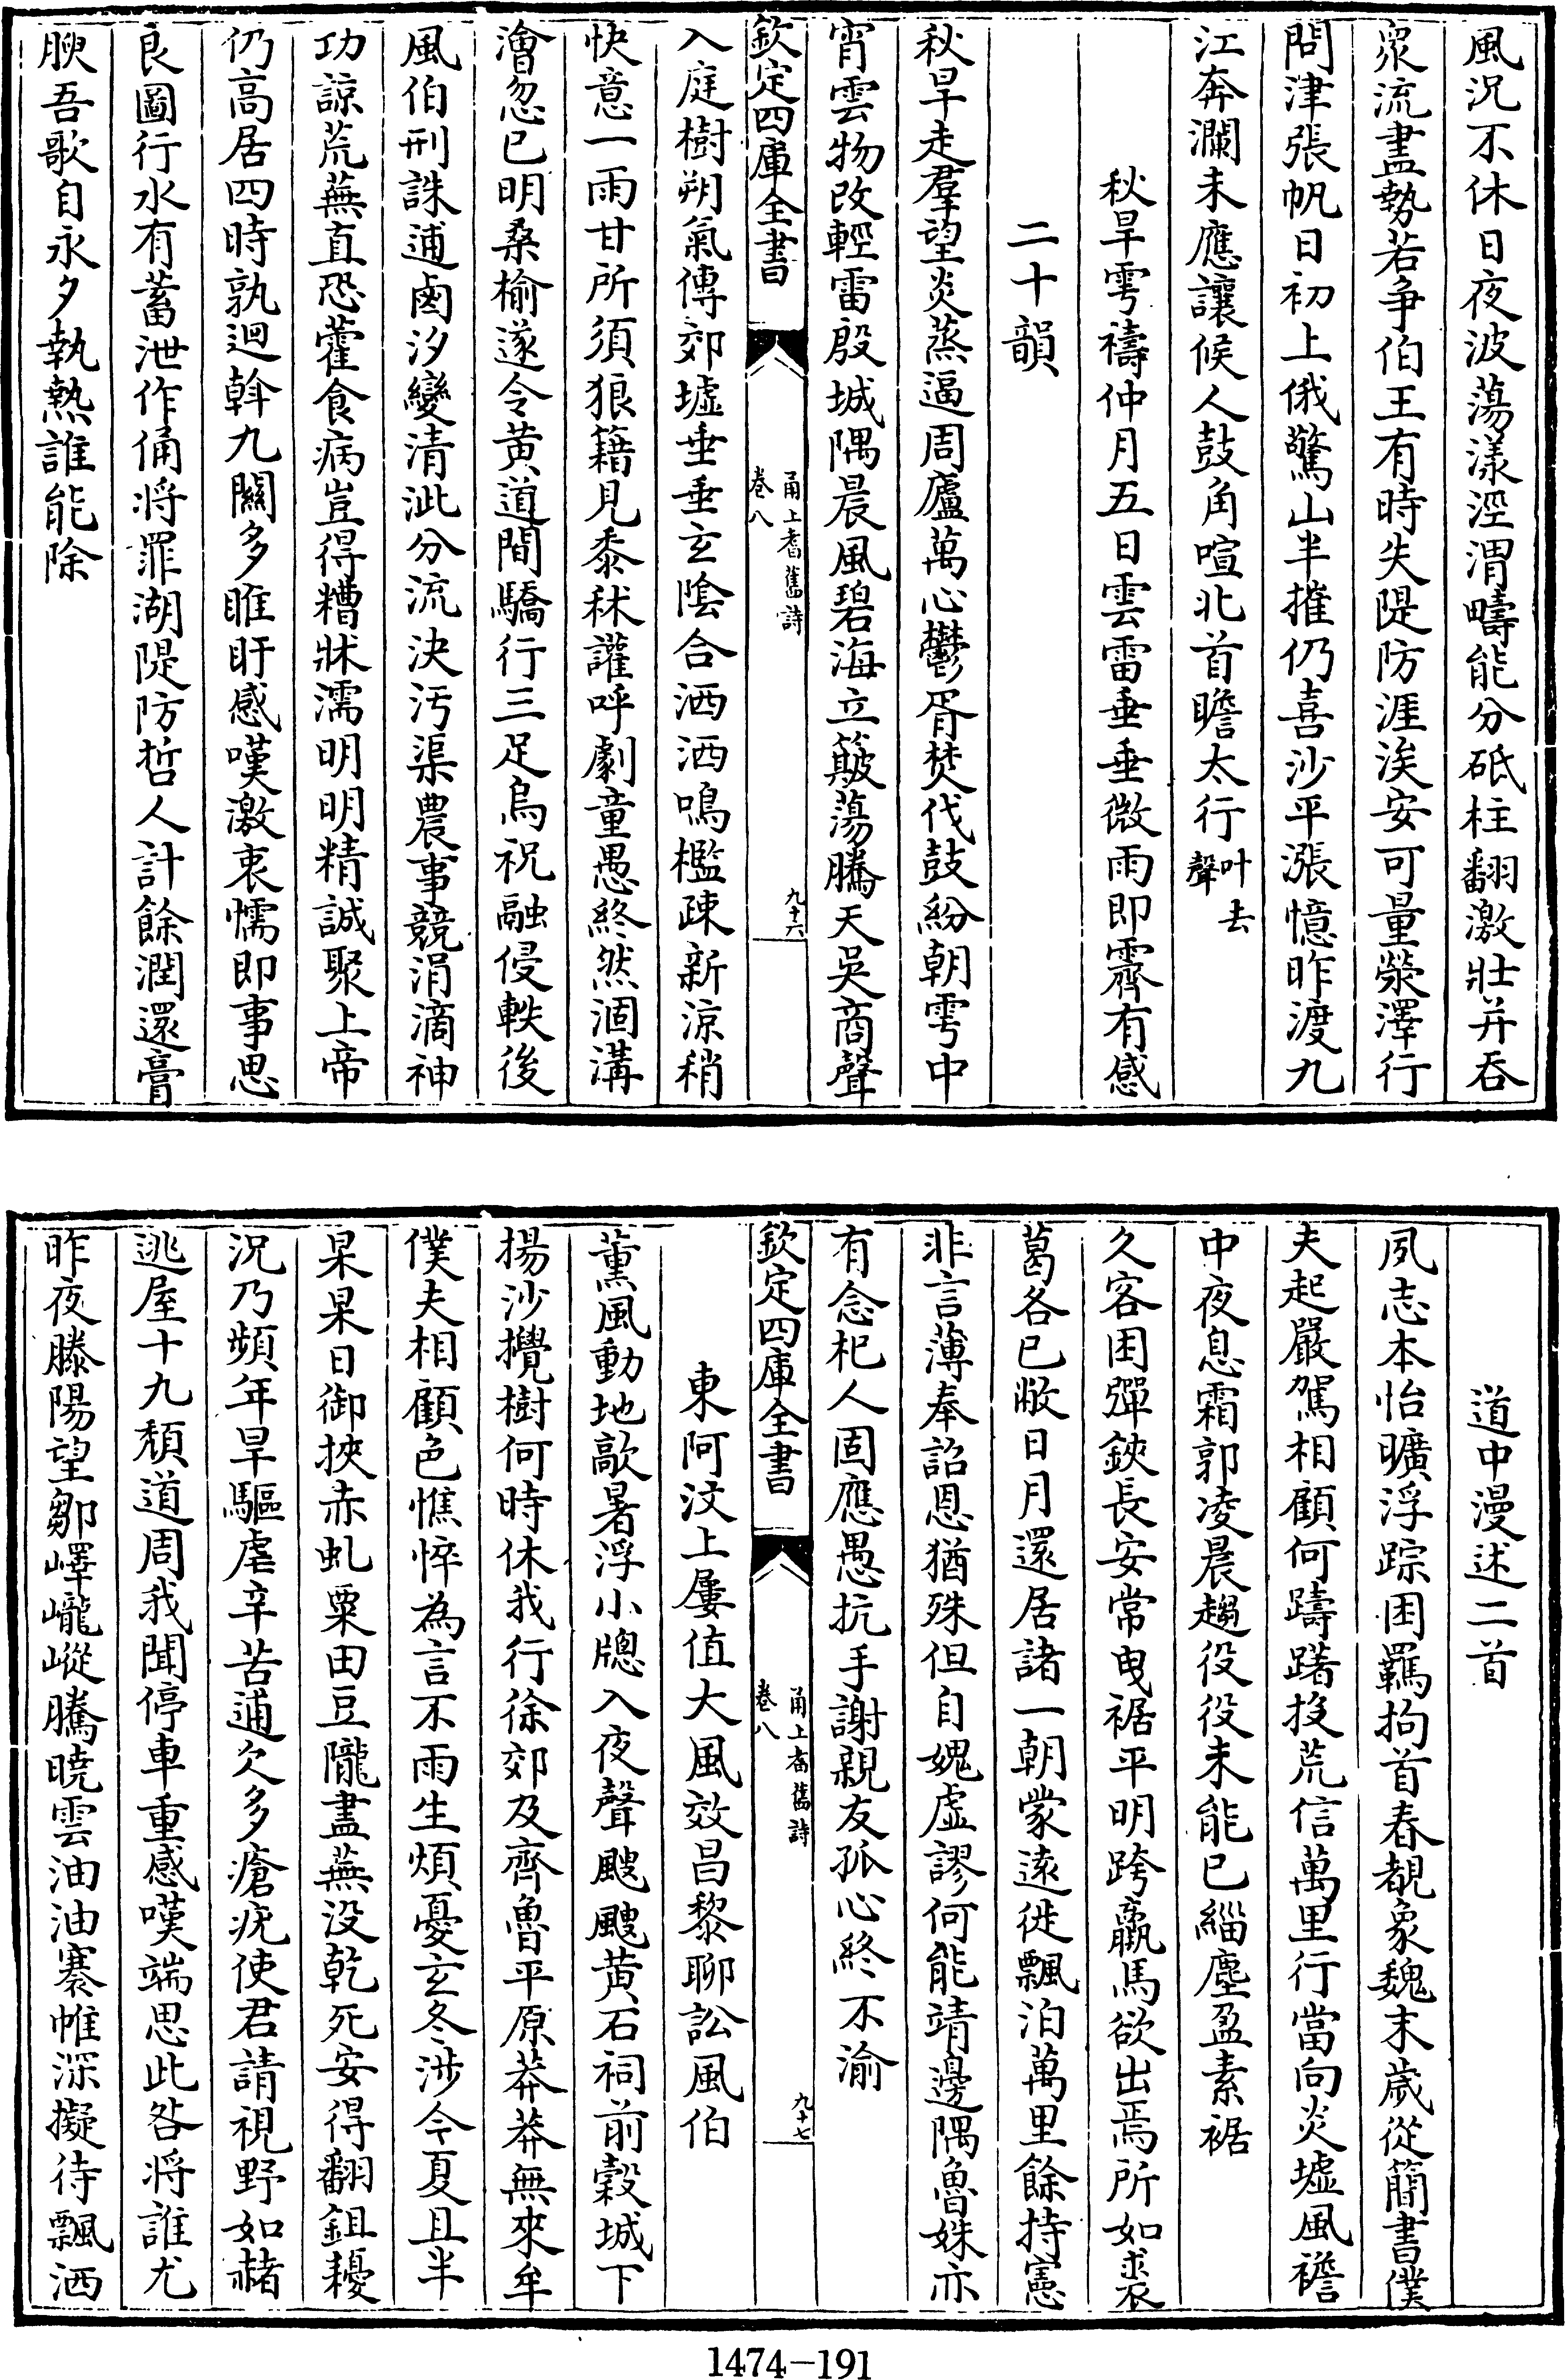 風況不休日夜波蕩漾涇渭疇能分砥柱翻激壯并吞
衆流盡勢若爭伯王有時失隄防涯涘安可量滎澤行
問津張帆日初上俄驚山半摧仍喜沙平漲憶昨渡九
江奔瀾未應讓候人鼓角喧北首瞻太行叶去聲
秋旱雩禱仲月五日雲雷垂垂微雨即霽有感
二十韻
秋旱走羣望炎蒸逼周廬萬心鬱胥焚伐鼓紛朝雩中
宵雲物改輕雷殷城隅晨風碧海立簸蕩騰天吳商聲
欽定四庫全書
甬上耆舊詩
卷八
九十六
入庭樹朔氣傳郊墟垂垂玄陰合洒洒鳴檻疎新涼稍
快意一雨甘所須狼籍見黍秫讙呼劇童愚終然涸溝
澮忽已明桑榆遂令黃道間驕行三足烏祝融侵軼後
風伯刑誅逋鹵汐變清泚分流決汚渠農事競涓滴神
功諒荒蕪直恐藿食病豈得糟牀濡明明精誠聚上帝
仍高居四時孰迴斡九關多睢盱感嘆激衷懦即事思
良圖行水有蓄泄作俑將罪湖隄防哲人計餘潤還膏
腴吾歌自永夕執熱誰能除
道中漫述二首
夙志本怡曠浮踪困羈拘首春覩象魏末歲從簡書僕
夫起嚴駕相顧何躊躇投荒信萬里行當向炎墟風襜
中夜息霜郭凌晨趨役役未能已緇塵盈素裾
久客困彈鋏長安常曳裾平明跨羸馬欲出焉所如裘
葛各已敝日月還居諸一朝蒙遠徙飄泊萬里餘持憲
非言薄奉詔恩猶殊但自媿虛謬何能靖邊隅魯姝亦
有念杞人固應愚抗手謝親友孤心終不渝
欽定四庫全書
甬上耆舊詩
卷八
九十七
東阿汶上屢值大風效昌黎聊訟風伯
薰風動地歊暑浮小牕入夜聲颼颼黃石祠前穀城下
揚沙攪樹何時休我行徐郊及齊魯平原莽莽無來牟
僕夫相顧色憔悴為言不雨生煩憂玄冬涉今夏且半
杲杲日御挾赤虬粟田豆隴盡蕪没乾死安得翻鉏耰
況乃頻年旱驅虐辛苦逋欠多瘡疣使君請視野如赭
逃屋十九頹道周我聞停車重感嘆端思此咎將誰尤
昨夜滕陽望鄒嶧巃嵸騰曉雲油油褰帷深擬待飄洒
1474-191